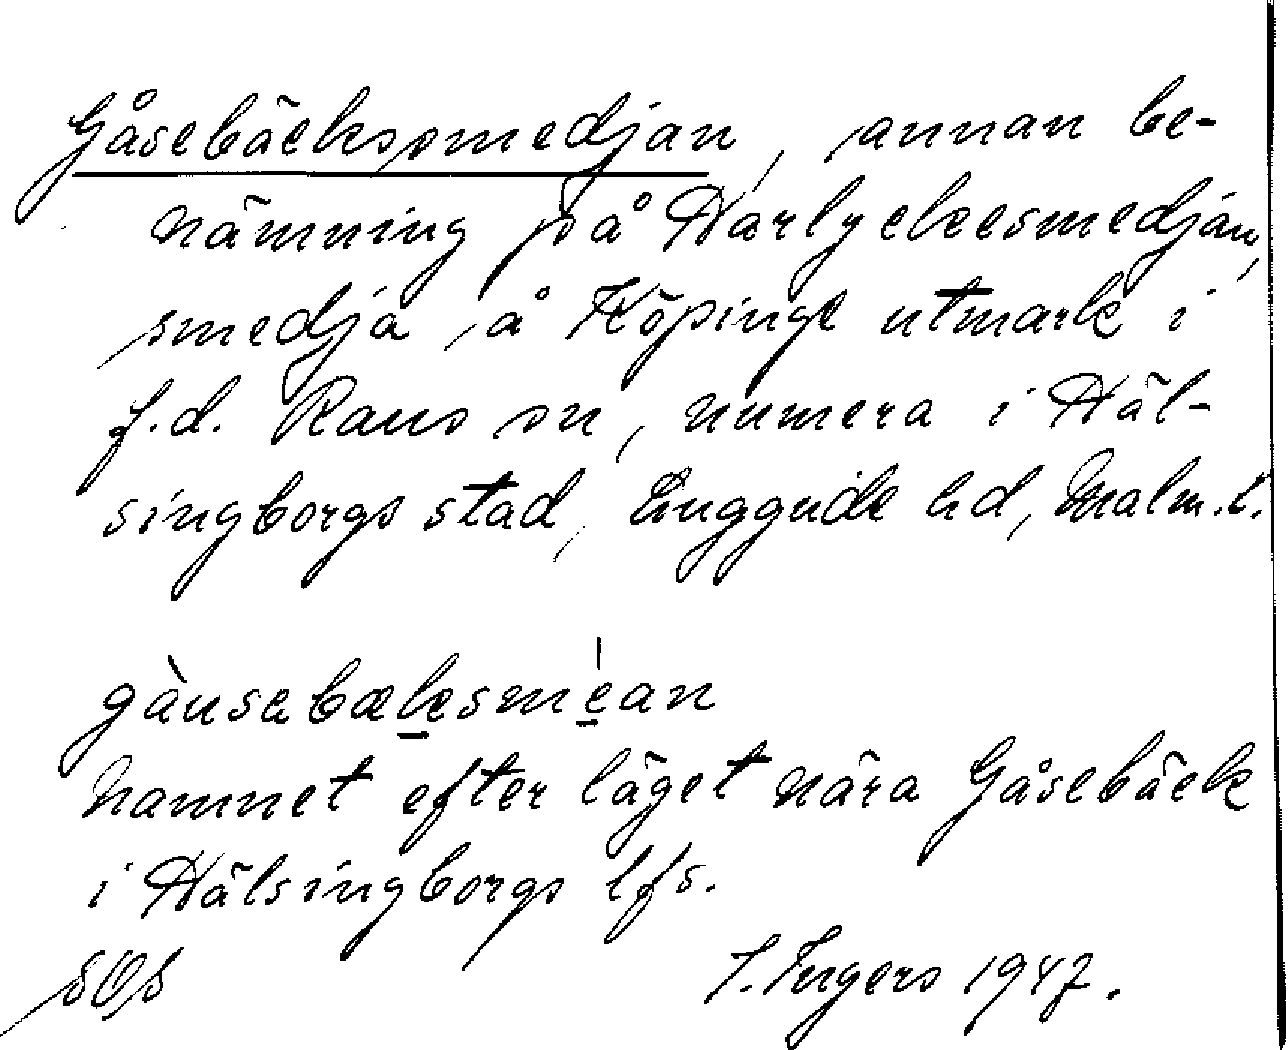 Gåsebäckssmedjan, annan be-
nämning på Harlyckesmedjan,
smedja å Köpinge utmark i
f.d. Raus sn, numera i Häl-
singborgs stad, Luggude hd, Malm.l.
gàusebæksméan
Namnet efter läget nära Gåsebäck
i Hälsingborgs lfs.
I. Ingers 1947.